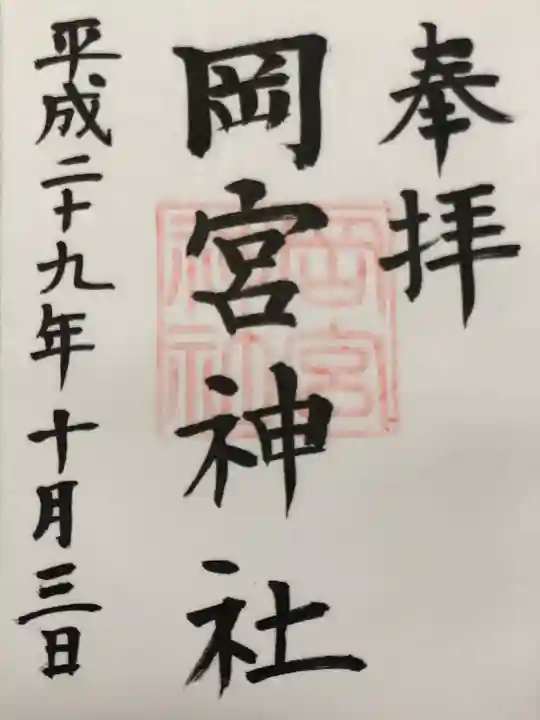 奉拝
岡宮神社
岡宮
神社
平成二十九年十月三日